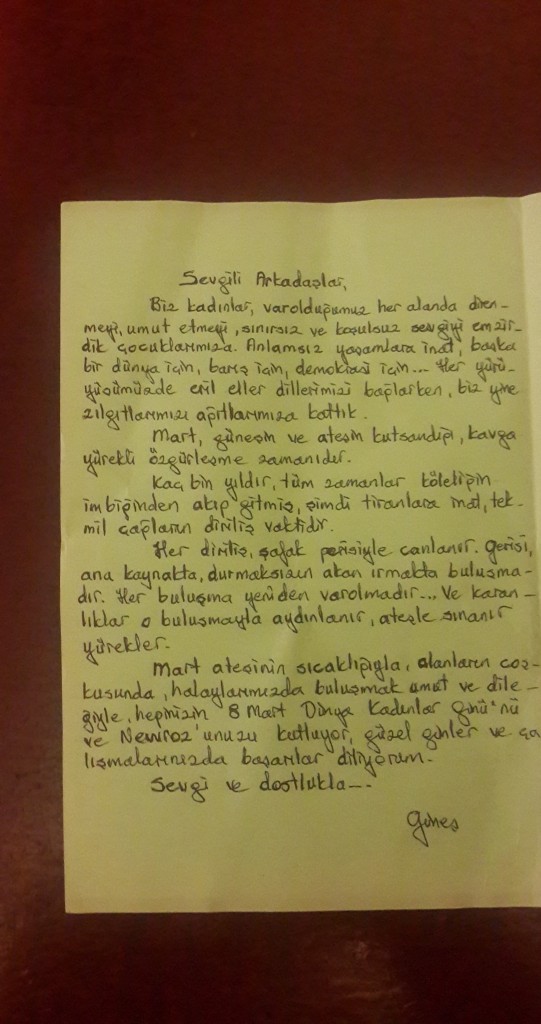 Sevgili Arkadaşlar,
Biz kadınlar, varolduğumuz her alanda diren-
meyi, umut etmeyi, sınırsız ve koşulsuz sevgiyi emzir-
dik çocuklarımıza. Anlamsız yaşamlara inat, başka
bir dünya için, barış için, demokrasi için... Her yürü-
yüşümüzde eril eller dillerimizi bağlarken, biz yine
zılgıtlarımızı ağıtlarımıza kattık.
Mart, güneşin ve ateşin kutsandığı, kavga
yürekli özgürleşme zamanıdır.
Kaç bin yıldır, tüm zamanlar köleliğin
imbiğinden akıp gitmiş, şimdi tiranlara inat, tek-
mil çağların diriliş vaktidir.
Her diriliş, şafak perisiyle canlanır. Gerisi,
ana kaynakta, durmaksızın akan ırmakta buluşma-
dır. Her buluşma yeniden varolmadır... Ve karan-
lıklar o buluşmayla aydınlanır, ateşle sınanır
yürekler.
Mart ateşinin sıcaklığıyla, alanların coş-
kusunda, halaylarımızda buluşmak umut ve dile-
ğiyle, hepinizin 8 Mart Dünya Kadınlar Günü'nü
ve Newroz'unuzu kutluyor, güzel günler ve ça
lışmalarınızda başarılar diliyorum.
Sevgi ve dostlukla...
Güneş